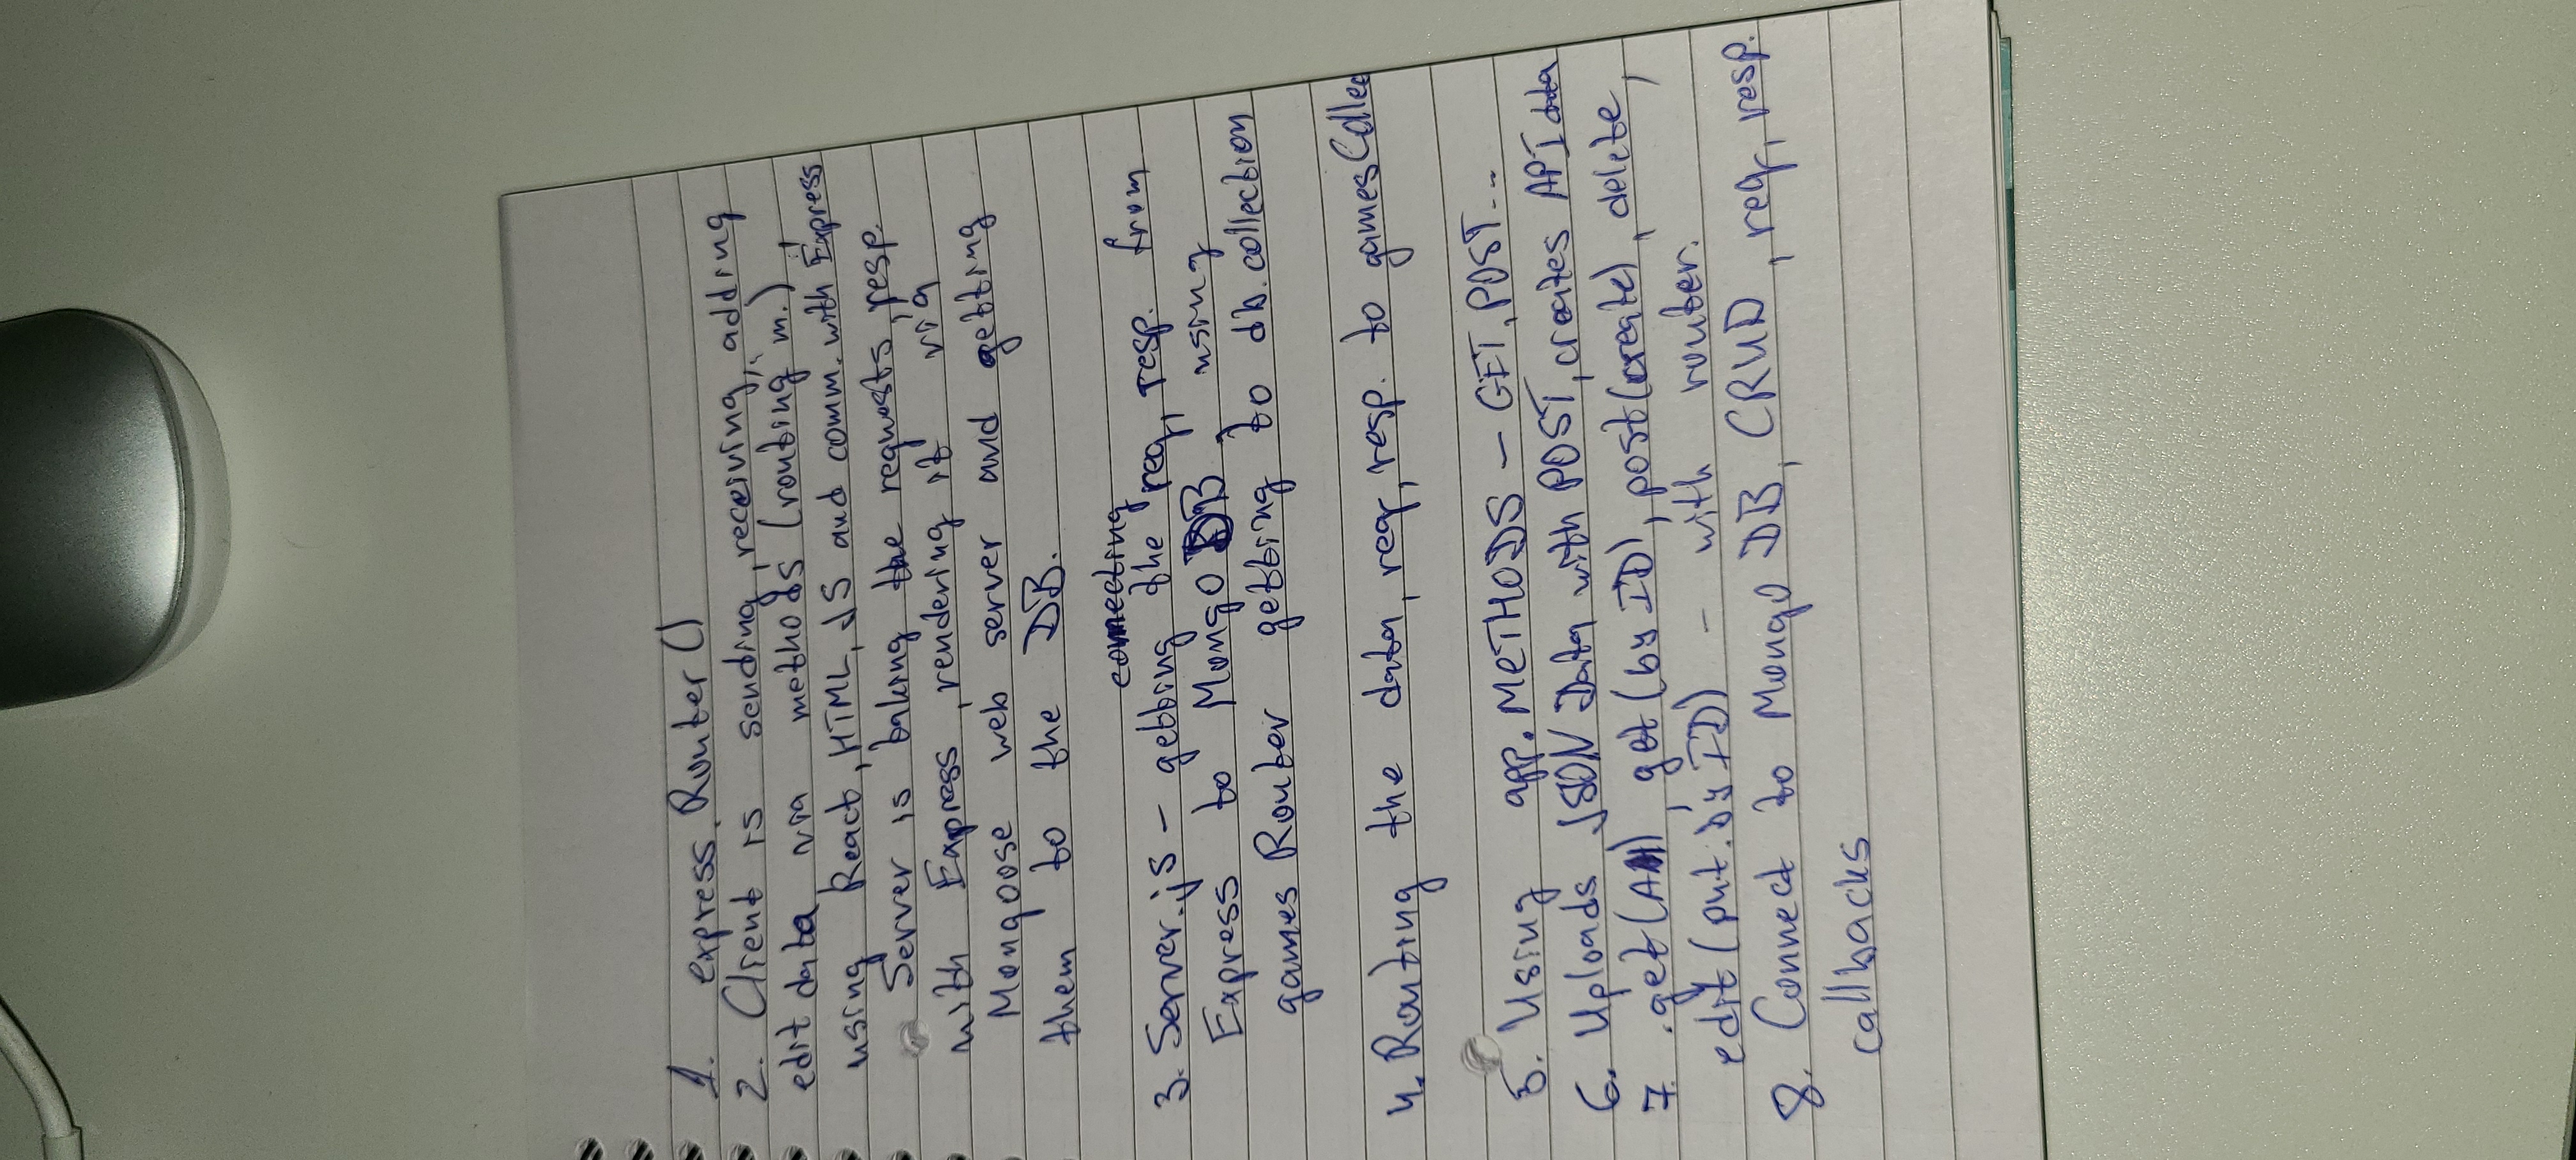 1. express.Router()
2. Client is sending, receiving, adding
edit data, via methods (routing m.),
using React, HTML, JS and comm. with Express
Server is taking the requests, resp.
with Express, rendering it via
Mongoose web server and getting
them to the DB.
connecting
3. Server.js - getting the req, resp. from
Express to Mongo DB, using
games Router getting to db.collection
4. Routing the data, req, resp. to gamesCollec
5. Using app.METHODS - GET, POST...
6. Uploads JSON Data with POST, creates API data
7. .get(All), get(by ID), post(create), delete,
edit(put.by ID) - with router.
8. Connect to Mongo DB, CRUD, req, resp.
callbacks